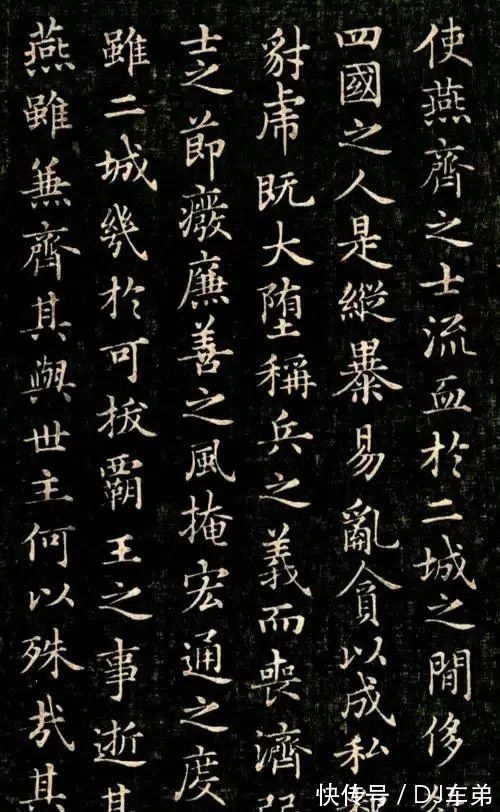 使燕齊之士流血於二城之間侈
四國之人是縱暴易亂貪以成私
豺虎既大堕稱兵之義而喪濟弱
士之節癈廉善之風掩宏通之度
雖二城幾於可拔霸王之事逝其
燕雖兼齊其與世主何以殊哉其
快传号 / DJ车弟